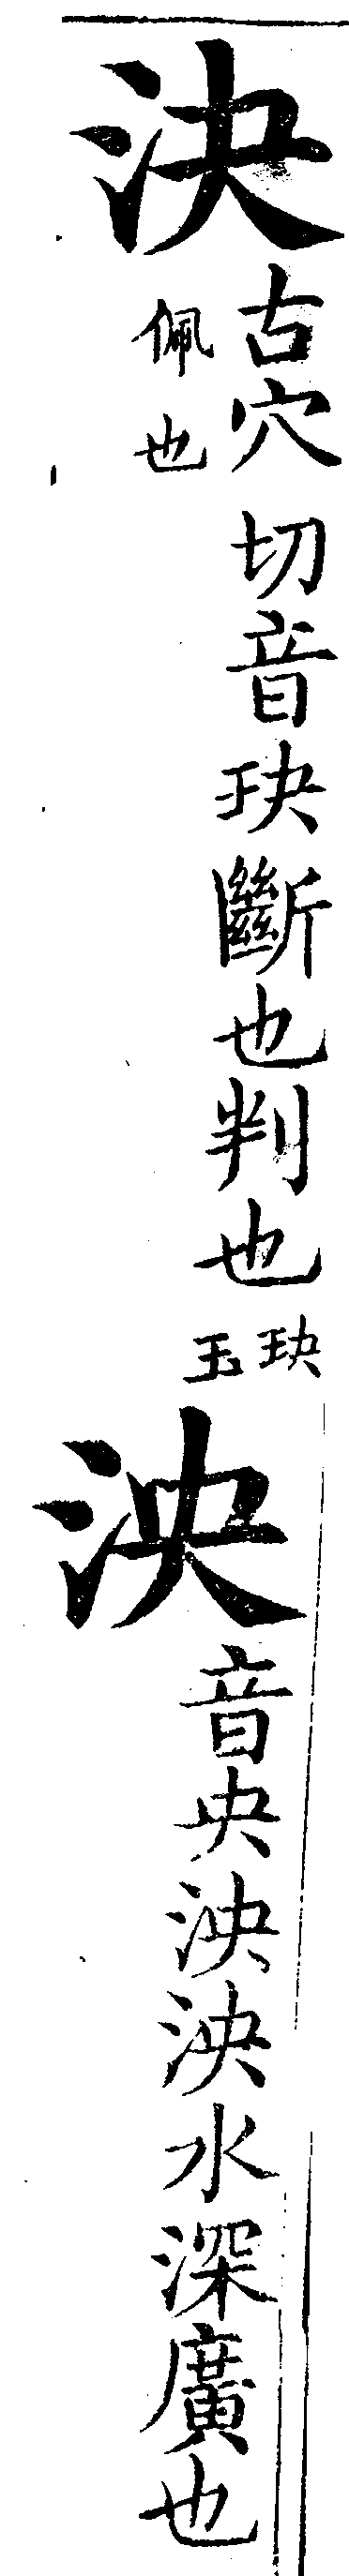 決古穴切音玦斷也判也玦玉佩也
泱音央泱泱水深廣也